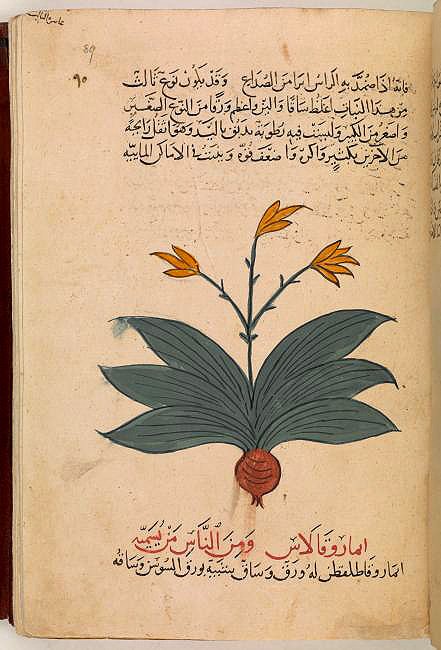 89
٩٠
فانه اذا ضمد به الراس ابرا من الصداع وقد يكون نوع ثالث
من هذا النبات اغلظ ساقا والين واعظم ورقا من النوع الصغير
واصغر من الكبير وليست فيه رطوبة يدبق باليد وهو اثقل رايحة
من الاخرين بكثير واضعف قوة وينبت الاماكن المايية
ايمارو قالاس ومن الناس من يسميه
ايمارو قاطلقطن له ورق وساق شبيه بورق السوسن وساقه